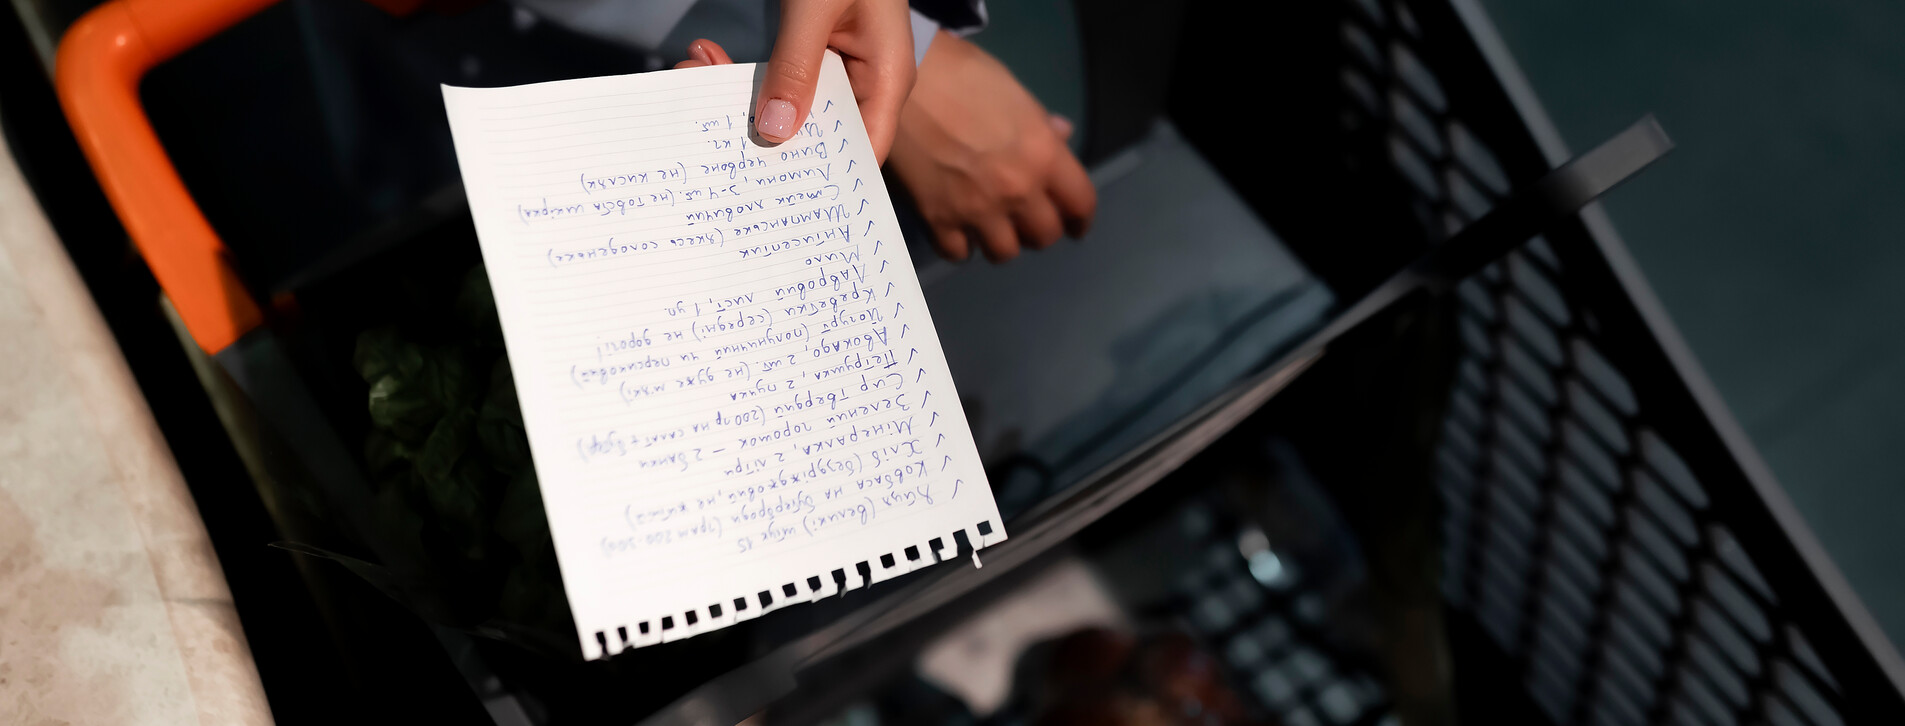 ✓ Яйця (великі) штук 15
✓ Ковбаса на бутерброди (грам 200-300)
✓ Хліб (бездріжджовий, не житній)
✓ Мінералка, 2 літри
✓ Зелений горошок – 2 банки
✓ Сир твердий (200 гр на салат + бутер)
✓ Петрушка, 2 пучка
✓ Авокадо, 2 шт. (не дуже м'які)
✓ Йогурт (полуничний чи персиковий)
✓ Креветки (середні) не дорогі!
✓ Лавровий лист, 1 уп.
✓ Мило
✓ Антисептик
✓ Шампанське (якесь солоденьке)
✓ Стейк яловичий
✓ Лимони, 3-4 шт. (не товста шкірка)
✓ Вино червоне (не кисляк)
✓ 1 кг.
✓ 1 шт.